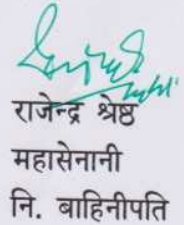 राजेन्द्र श्रेष्ठ
महासेनानी
नि. बाहिनीपति